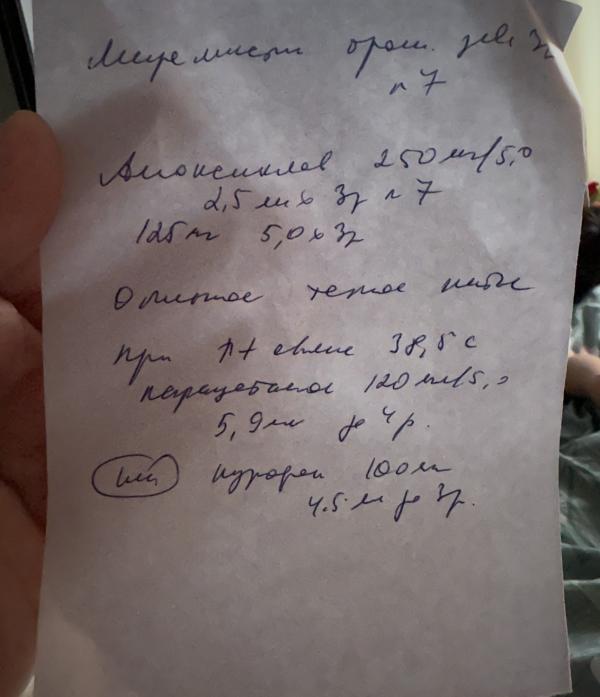 Мирамистин орош. зева 3р
n 7
Амоксиклав 250 мг/5,0
2,5 мл х 3р n 7
125 мг 5,0 х 3р
Обильное теплое питье
при пт свыше 38,5 с
парацетамол 120 мг/5,0
5,9 мл до 4 р.
или нурофен 100 мг
4.5 мл до 3р.